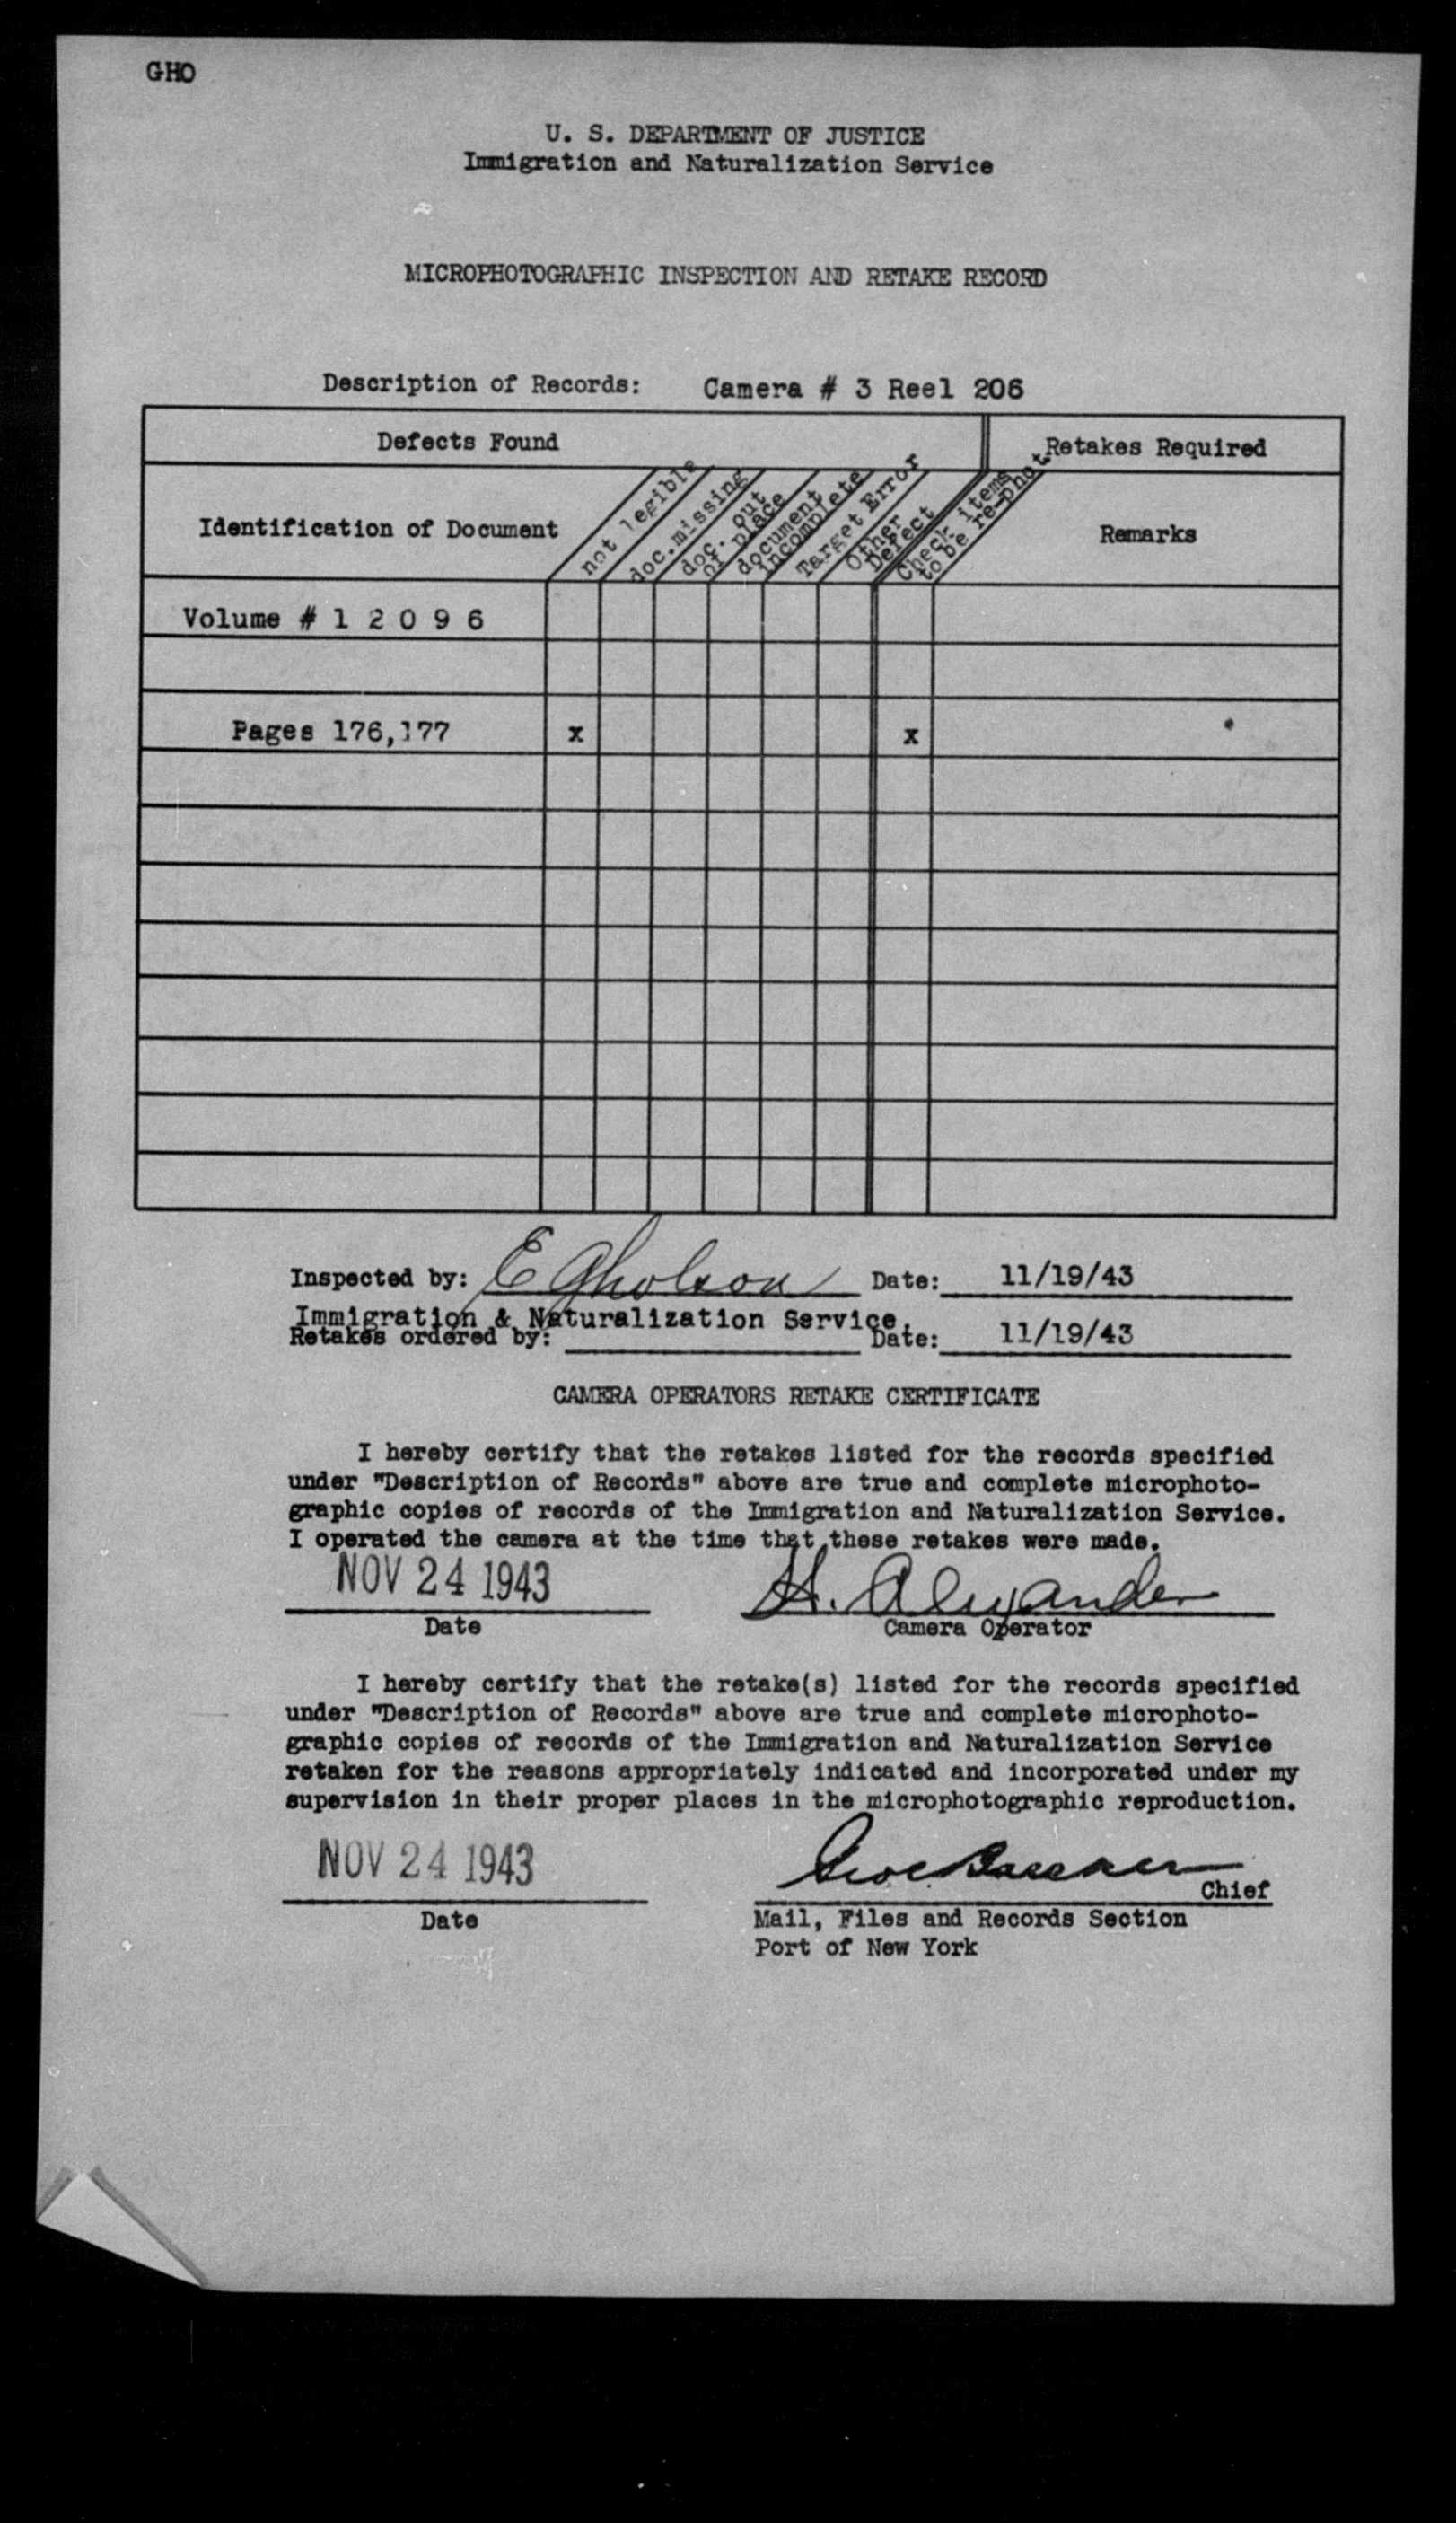 GHO
U. S. DEPARTMENT OF JUSTICE
Immigration and Naturalization Service
MICROPHOTOGRAPHIC INSPECTION AND RETAKE RECORD
Description of Records: Camera # 3 Reel 206
Defects Found
Retakes Required
Identification of Document
not legible
doc. missing
doc. out
of place
document
incomplete
Target Error
Other
Defect
Check items
to be re-phot
Remarks
Volume # 1 2 0 9 6
Pages 176,177 x x
Inspected by: E Gholson Date: 11/19/43
Immigration & Naturalization Service.
Retakes ordered by: Date: 11/19/43
CAMERA OPERATORS RETAKE CERTIFICATE
I hereby certify that the retakes listed for the records specified
under "Description of Records" above are true and complete microphoto-
graphic copies of records of the Immigration and Naturalization Service.
I operated the camera at the time that these retakes were made.
NOV 24 1943 H. Alexander
Date Camera Operator
I hereby certify that the retake(s) listed for the records specified
under "Description of Records" above are true and complete microphoto-
graphic copies of records of the Immigration and Naturalization Service
retaken for the reasons appropriately indicated and incorporated under my
supervision in their proper places in the microphotographic reproduction.
NOV 24 1943
Chief
Date Mail, Files and Records Section
Port of New York